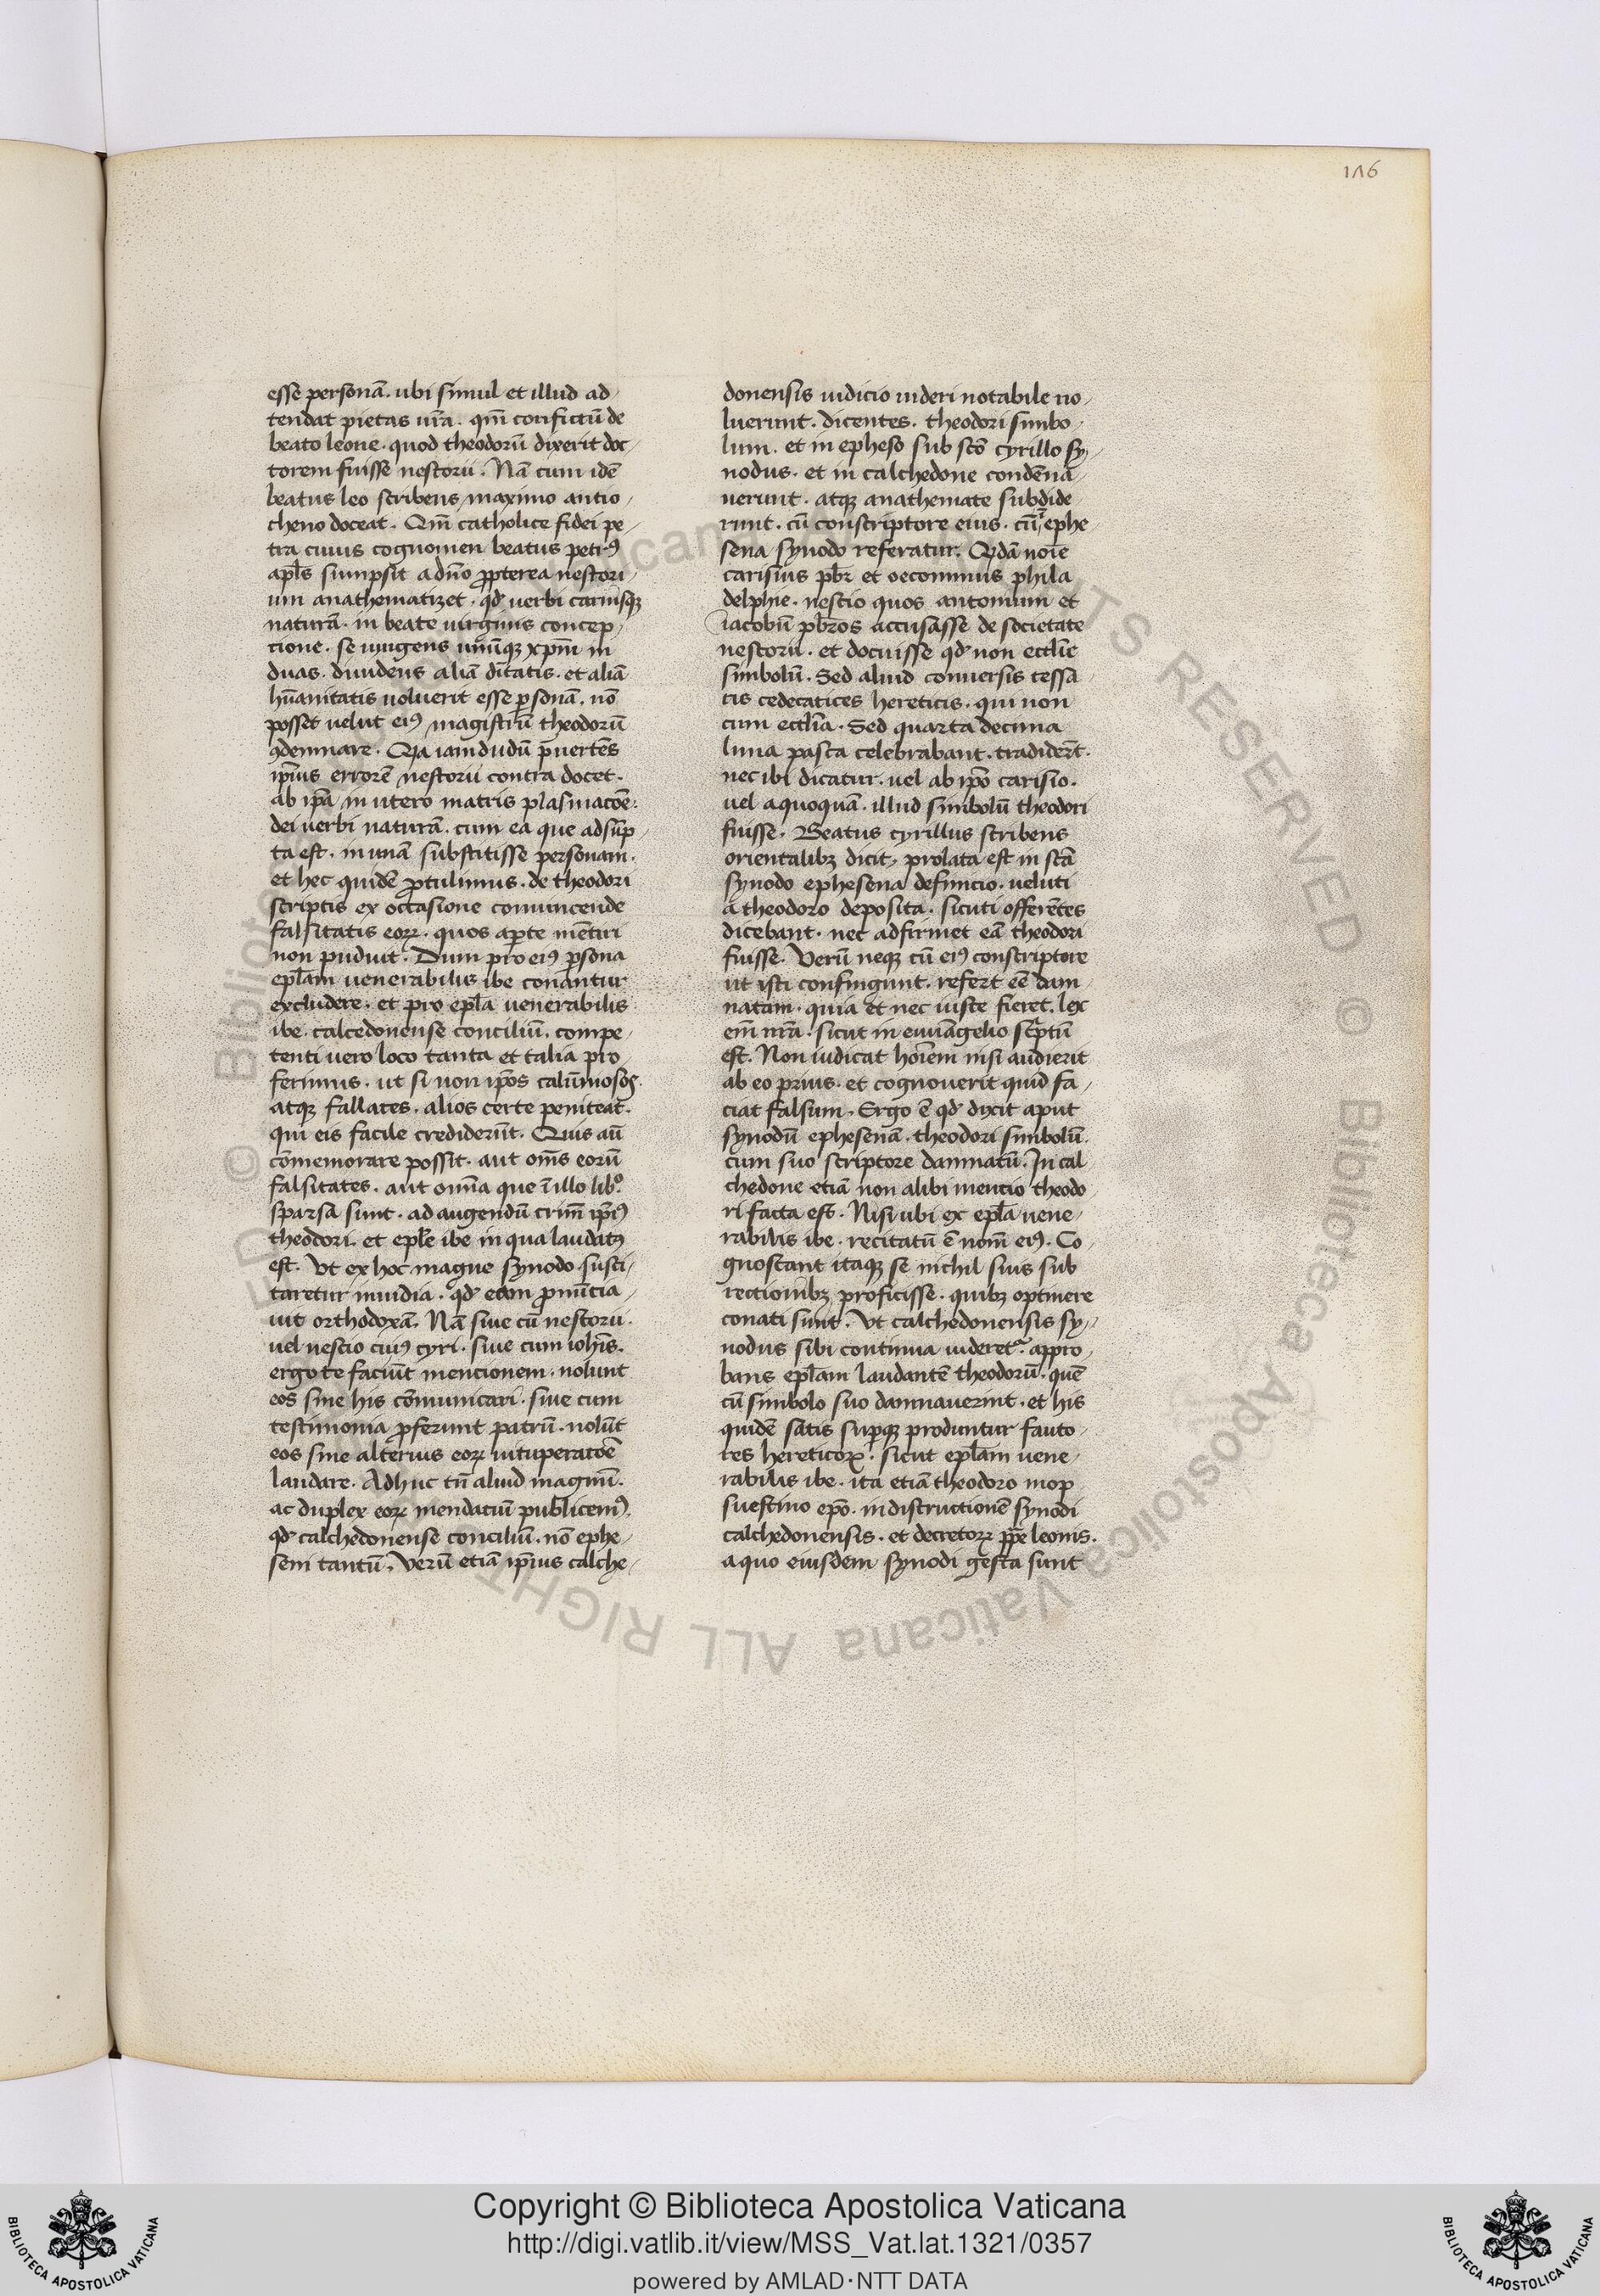 1Λ6
esse personā. ubi simul et illud ad
tendat pietas nr̄a. qm̄ confictū de
beato leone. quod theodorū dixerit doc
torem fuisse nestorii. Nā cum idē
beatus leo scribens maximo antio
cheno doceat. Qm̄ catholice fidei pe
tra cuius cognomen beatus petrꝰ
apl̄s sumpsit a dn̄o ꝓpterea nestori
um anathematizet. qd̛ uerbi carnisqꝫ
naturā. in beate uirginis concep
tione. se iungens unūqꝫ xp̄m in
duas. diuidens aliā dītatis. et aliā
hūanitatis uoluerit esse ꝑsonā. nō
posset uelut eiꝰ magistrū theodorū
ꝯdemnare. Qꝛa iamdudū p̄uertēs
ip̄ius errorē nestorii contra docet.
ab ip̄a in utero matris plasmatōe.
dei uerbi naturā. cum ea que adsūp
ta est. in unā substitisse personam.
et hec quidē ꝓtulimus. de theodori
scriptis ex occasione conuincende
falsitatis eoꝝ. quos aꝑte mētiri
non puduit. Dum pro eiꝰ ꝑsona
epl̄am uenerabilis ibe conantur
excludere. et pro epl̄a uenerabilis
ibe. calcedonense conciliū. compe
tenti uero loco tanta et talia pro
ferimus. ut si non ip̄os calūniosos.
atqꝫ fallaces. alios certe peniteat.
qui eis facile crediderūt. Quis aū
cōmemorare possit. aut om̄s eorū
falsitates. aut omīa que ī illo libº.
sparsa sunt. ad augendū crim̄ ip̄iꝰ
theodori. et epl̄e ibe in qua laudatꝰ
est. Ut ex hoc magne synodo susci
taretur inuidia. qd̛ eam ꝓnūtia
uit orthodoxā. Nā siue cū nestorii.
uel nescio cuiꝰ cyri. siue cum iohīs.
ergo te faciūt mencionem. nolunt
eos sine his cōmunicari. siue cum
testimonia ꝓferunt patrū. nolūt
eos sine alterius eoꝝ uituperatōe
laudare. Adhuc tn̄ aliud magnū.
ac duplex eoꝝ mendaciū publicemꝰ.
qd̛ calchedonense conciliū. nō ephe
seni tantū. Verū etiā ip̄ius calche
donensis iudicio uideri notabile uo
luerunt. dicentes. theodori simbo
lum. et in epheso sub sc̄o cyrillo sy
nodus. et in calchedone condēna
uerunt. atqꝫ anathemate subdide
runt. cū conscriptore eius. cū ī ephe
sena synodo referatur. Qdā noīe
carisius pb̄r et oeconimus phila
delphie. nescio quos antonium et
iacobū pb̄ros accusasse de societate
nestorii. et docuisse qd̛ non eccl̄ie
simbolū. Sed aliud conuersis tessa
cis cedecatices hereticis. qui non
cum eccl̄ia. Sed quarta decima
luna pasca celebrabant. tradider̄t.
nec ibi dicatur. uel ab ip̄o carisio.
uel a quoquā. illud simbolū theodori
fuisse. Beatus cyrillus scribens
orientalibꝫ dicit, prolata est in sc̄a
synodo ephesena definicio. ueluti
a theodoro deposita. sicuti offerētes
dicebant. nec adfirmet eā theodori
fuisse. Verū neqꝫ cū eiꝰ conscriptore
ut isti confingunt. refert eē dam
natam. quia et nec iuste fieret. lex
em̄ nr̄a. sicut in euuāgelio sc̄ptū
est. Non iudicat hoīem nisi audierit
ab eo prius. et cognouerit quid fa
ciat falsum. Ergo ē qd̛ dixit aput
synodū ephesenā. theodori simbolū.
cum suo scriptore damnatū. In cal
chedone etiā non alibi mencio theodo
ri facta est. Nisi ubi ex epl̄a uene
rabilis ibe. recitatū ē nom̄ eiꝰ. Co
gnoscant itaqꝫ se nichil suis sub
rectionibꝫ proficisse. quibꝫ optinere
conati sunt. Ut calchedonensis sy
nodus sibi continua uideretᷣ. appro
bans epl̄am laudantē theodorū. quē
cū simbolo suo damnauerint. et his
quidē satis suꝑqꝫ produntur fauto
res hereticoꝝ. sicut epl̄am uene
rabilis ibe. ita etiā theodoro mop
suestino ep̄o. in distructionē synodi
calchedonensis. et decretoꝝ pp̄e leonis.
a quo eiusdem synodi gesta sunt
Copyright © Biblioteca Apostolica Vaticana
http://digi.vatlib.it/view/MSS_Vat.lat.1321/0357
powered by AMLAD·NTT DATA
BIBLIOTECA APOSTOLICA VATICANA
BIBLIOTECA APOSTOLICA VATICANA